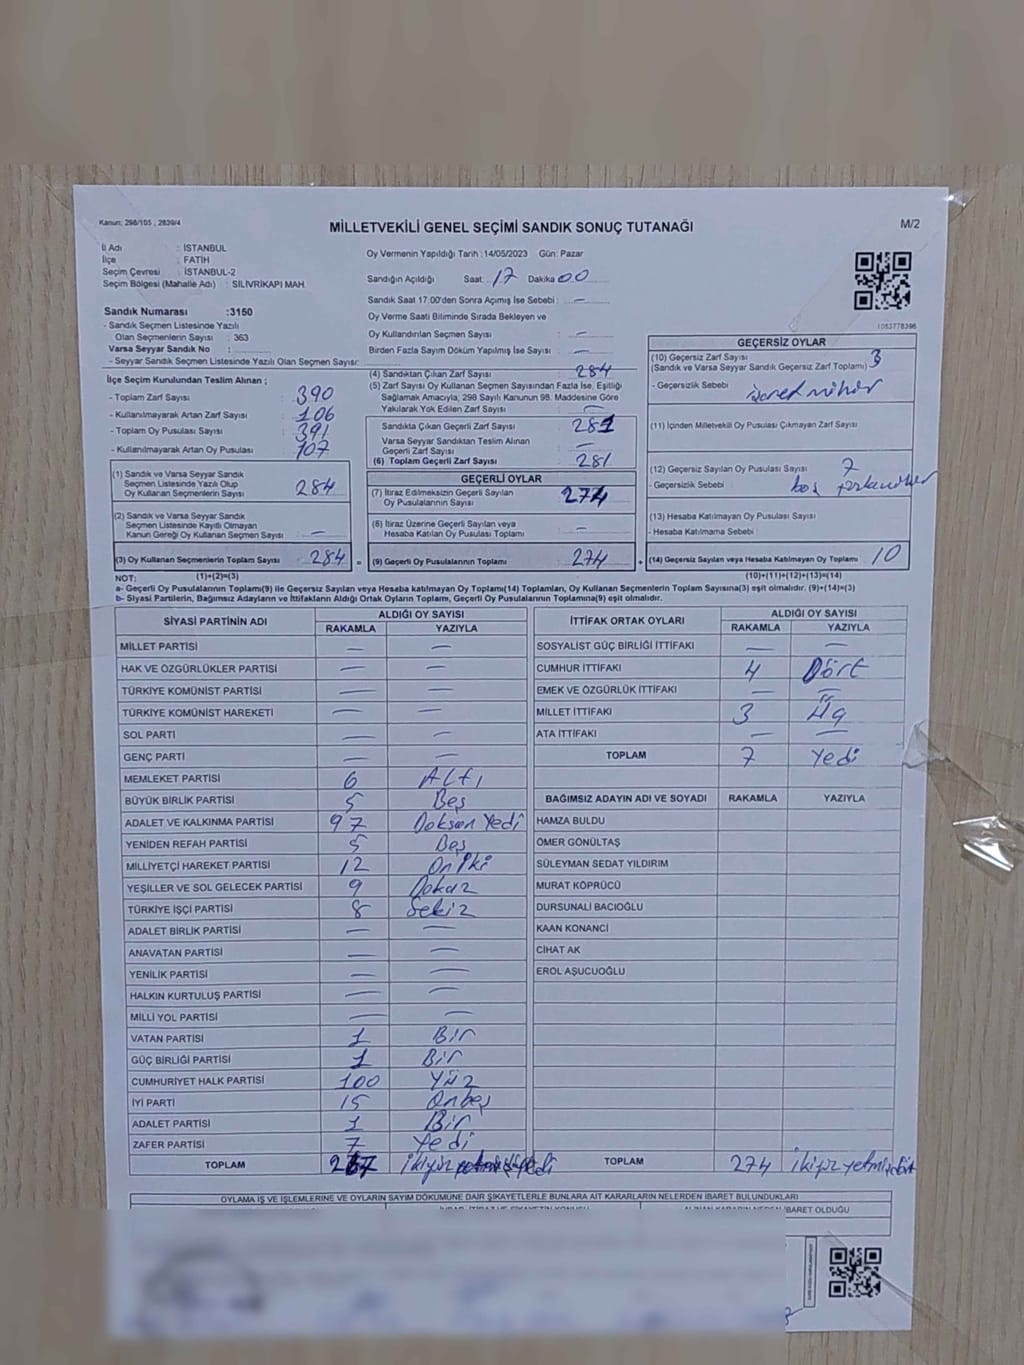 Kanun; 298/105 ; 2839/4
MİLLETVEKİLİ GENEL SEÇİMİ SANDIK SONUÇ TUTANAĞI
M/2
İl Adı : İSTANBUL
İlçe : FATİH
Seçim Çevresi : İSTANBUL-2
Seçim Bölgesi (Mahalle Adı) : SİLİVRİKAPI MAH
Sandık Numarası :3150
- Sandık Seçmen Listesinde Yazılı
Olan Seçmenlerin Sayısı : 363
Varsa Seyyar Sandık No :
- Seyyar Sandık Seçmen Listesinde Yazılı Olan Seçmen Sayısı:
Oy Vermenin Yapıldığı Tarih :14/05/2023 Gün: Pazar
Sandığın Açıldığı Saat: 17 Dakika 00
Sandık Saat 17:00'den Sonra Açımış İse Sebebi : —
Oy Verme Saati Bitiminde Sırada Bekleyen ve
Oy Kullandırılan Seçmen Sayısı —
Birden Fazla Sayım Döküm Yapılmış İse Sayısı —
1053778396
İlçe Seçim Kurulundan Teslim Alınan ;
- Toplam Zarf Sayısı : 390
- Kullanılmayarak Artan Zarf Sayısı : 106
- Toplam Oy Pusulası Sayısı : 391
- Kullanılmayarak Artan Oy Pusulası : 107
(1) Sandık ve Varsa Seyyar Sandık
Seçmen Listesinde Yazılı Olup
Oy Kullanan Seçmenlerin Sayısı 284
(2) Sandık ve Varsa Seyyar Sandık
Seçmen Listesinde Kayıtlı Olmayan
Kanun Gereği Oy Kullanan Seçmen Sayısı —
(3) Oy Kullanan Seçmenlerin Toplam Sayısı 284
(4) Sandıktan Çıkan Zarf Sayısı 284
(5) Zarf Sayısı Oy Kullanan Seçmen Sayısından Fazla İse, Eşitliği
Sağlamak Amacıyla; 298 Sayılı Kanunun 98. Maddesine Göre
Yakılarak Yok Edilen Zarf Sayısı —
Sandıkta Çıkan Geçerli Zarf Sayısı 281
Varsa Seyyar Sandıktan Teslim Alınan
Geçerli Zarf Sayısı —
(6) Toplam Geçerli Zarf Sayısı 281
GEÇERLİ OYLAR
(7) İtiraz Edilmeksizin Geçerli Sayılan
Oy Pusulalarının Sayısı 274
(8) İtiraz Üzerine Geçerli Sayılan veya
Hesaba Katılan Oy Pusulası Toplamı —
(9) Geçerli Oy Pusulalarının Toplamı 274
GEÇERSİZ OYLAR
(10) Geçersiz Zarf Sayısı 3
(Sandık ve Varsa Seyyar Sandık Geçersiz Zarf Toplamı)
- Geçersizlik Sebebi
(11) İçinden Milletvekili Oy Pusulası Çıkmayan Zarf Sayısı
(12) Geçersiz Sayılan Oy Pusulası Sayısı 7
- Geçersizlik Sebebi boş
(13) Hesaba Katılmayan Oy Pusulası Sayısı
- Hesaba Katılmama Sebebi
(14) Geçersiz Sayılan veya Hesaba Katılmayan Oy Toplamı 10
NOT: (1)+(2)=(3) (10)+(11)+(12)+(13)=(14)
a- Geçerli Oy Pusulalarının Toplamı(9) ile Geçersiz Sayılan veya Hesaba katılmayan Oy Toplamı(14) Toplamları, Oy Kullanan Seçmenlerin Toplam Sayısına(3) eşit olmalıdır. (9)+(14)=(3)
b- Siyasi Partilerin, Bağımsız Adayların ve İttifakların Aldığı Ortak Oyların Toplamı, Geçerli Oy Pusulalarının Toplamına(9) eşit olmalıdır.
SİYASİ PARTİNİN ADI ALDIĞI OY SAYISI
RAKAMLA YAZIYLA
MİLLET PARTİSİ — —
HAK VE ÖZGÜRLÜKLER PARTİSİ — —
TÜRKİYE KOMÜNİST PARTİSİ — —
TÜRKİYE KOMÜNİST HAREKETİ — —
SOL PARTİ — —
GENÇ PARTİ — —
MEMLEKET PARTİSİ 6 Altı
BÜYÜK BİRLİK PARTİSİ 5 Beş
ADALET VE KALKINMA PARTİSİ 97 Doksan Yedi
YENİDEN REFAH PARTİSİ 5 Beş
MİLLİYETÇİ HAREKET PARTİSİ 12 On iki
YEŞİLLER VE SOL GELECEK PARTİSİ 9 Dokuz
TÜRKİYE İŞÇİ PARTİSİ 8 Sekiz
ADALET BİRLİK PARTİSİ — —
ANAVATAN PARTİSİ — —
YENİLİK PARTİSİ — —
HALKIN KURTULUŞ PARTİSİ — —
MİLLİ YOL PARTİSİ — —
VATAN PARTİSİ 1 Bir
GÜÇ BİRLİĞİ PARTİSİ 1 Bir
CUMHURİYET HALK PARTİSİ 100 Yüz
İYİ PARTİ 15 Onbeş
ADALET PARTİSİ 1 Bir
ZAFER PARTİSİ 7 Yedi
TOPLAM 267
İTTİFAK ORTAK OYLARI ALDIĞI OY SAYISI
RAKAMLA YAZIYLA
SOSYALİST GÜÇ BİRLİĞİ İTTİFAKI — —
CUMHUR İTTİFAKI 4 Dört
EMEK VE ÖZGÜRLÜK İTTİFAKI — —
MİLLET İTTİFAKI 3 Üç
ATA İTTİFAKI — —
TOPLAM 7 Yedi
BAĞIMSIZ ADAYIN ADI VE SOYADI RAKAMLA YAZIYLA
HAMZA BULDU
ÖMER GÖNÜLTAŞ
SÜLEYMAN SEDAT YILDIRIM
MURAT KÖPRÜCÜ
DURSUNALİ BACIOĞLU
KAAN KONANCİ
CİHAT AK
EROL AŞUCUOĞLU
TOPLAM 274 ikiyüzyetmişdört
OYLAMA İŞ VE İŞLEMLERİNE VE OYLARIN SAYIM DÖKÜMÜNE DAİR ŞİKAYETLERLE BUNLARA AİT KARARLARIN NELERDEN İBARET BULUNDUKLARI
İBARET OLDUĞU